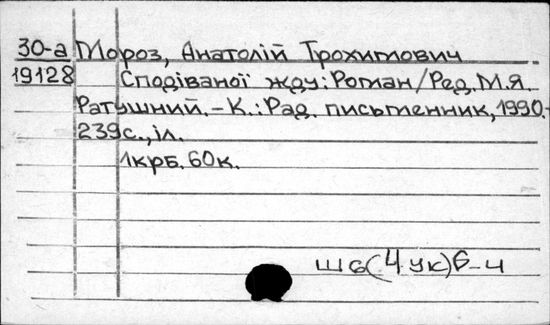 30-а Мороз, Анатолій Трохимович
19128 Сподіваної жду: Роман/Ред. М.Я.
Ратушний.-К.: Рад. письменник, 1990.-
239с., іл.
1крб. 60к.
Ш6(4УК)6-4